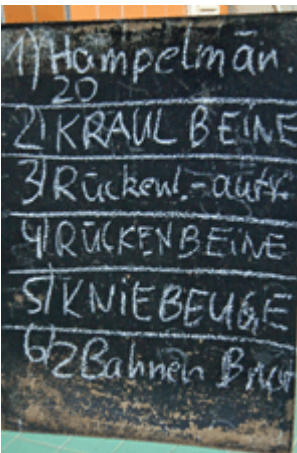 1) Hampelmän.
20
2) KRAUL BEINE
3) Rückenl.-aufr.
4) RÜCKENBEINE
5) KNIEBEUGE
6) 2 Bahnen Brust